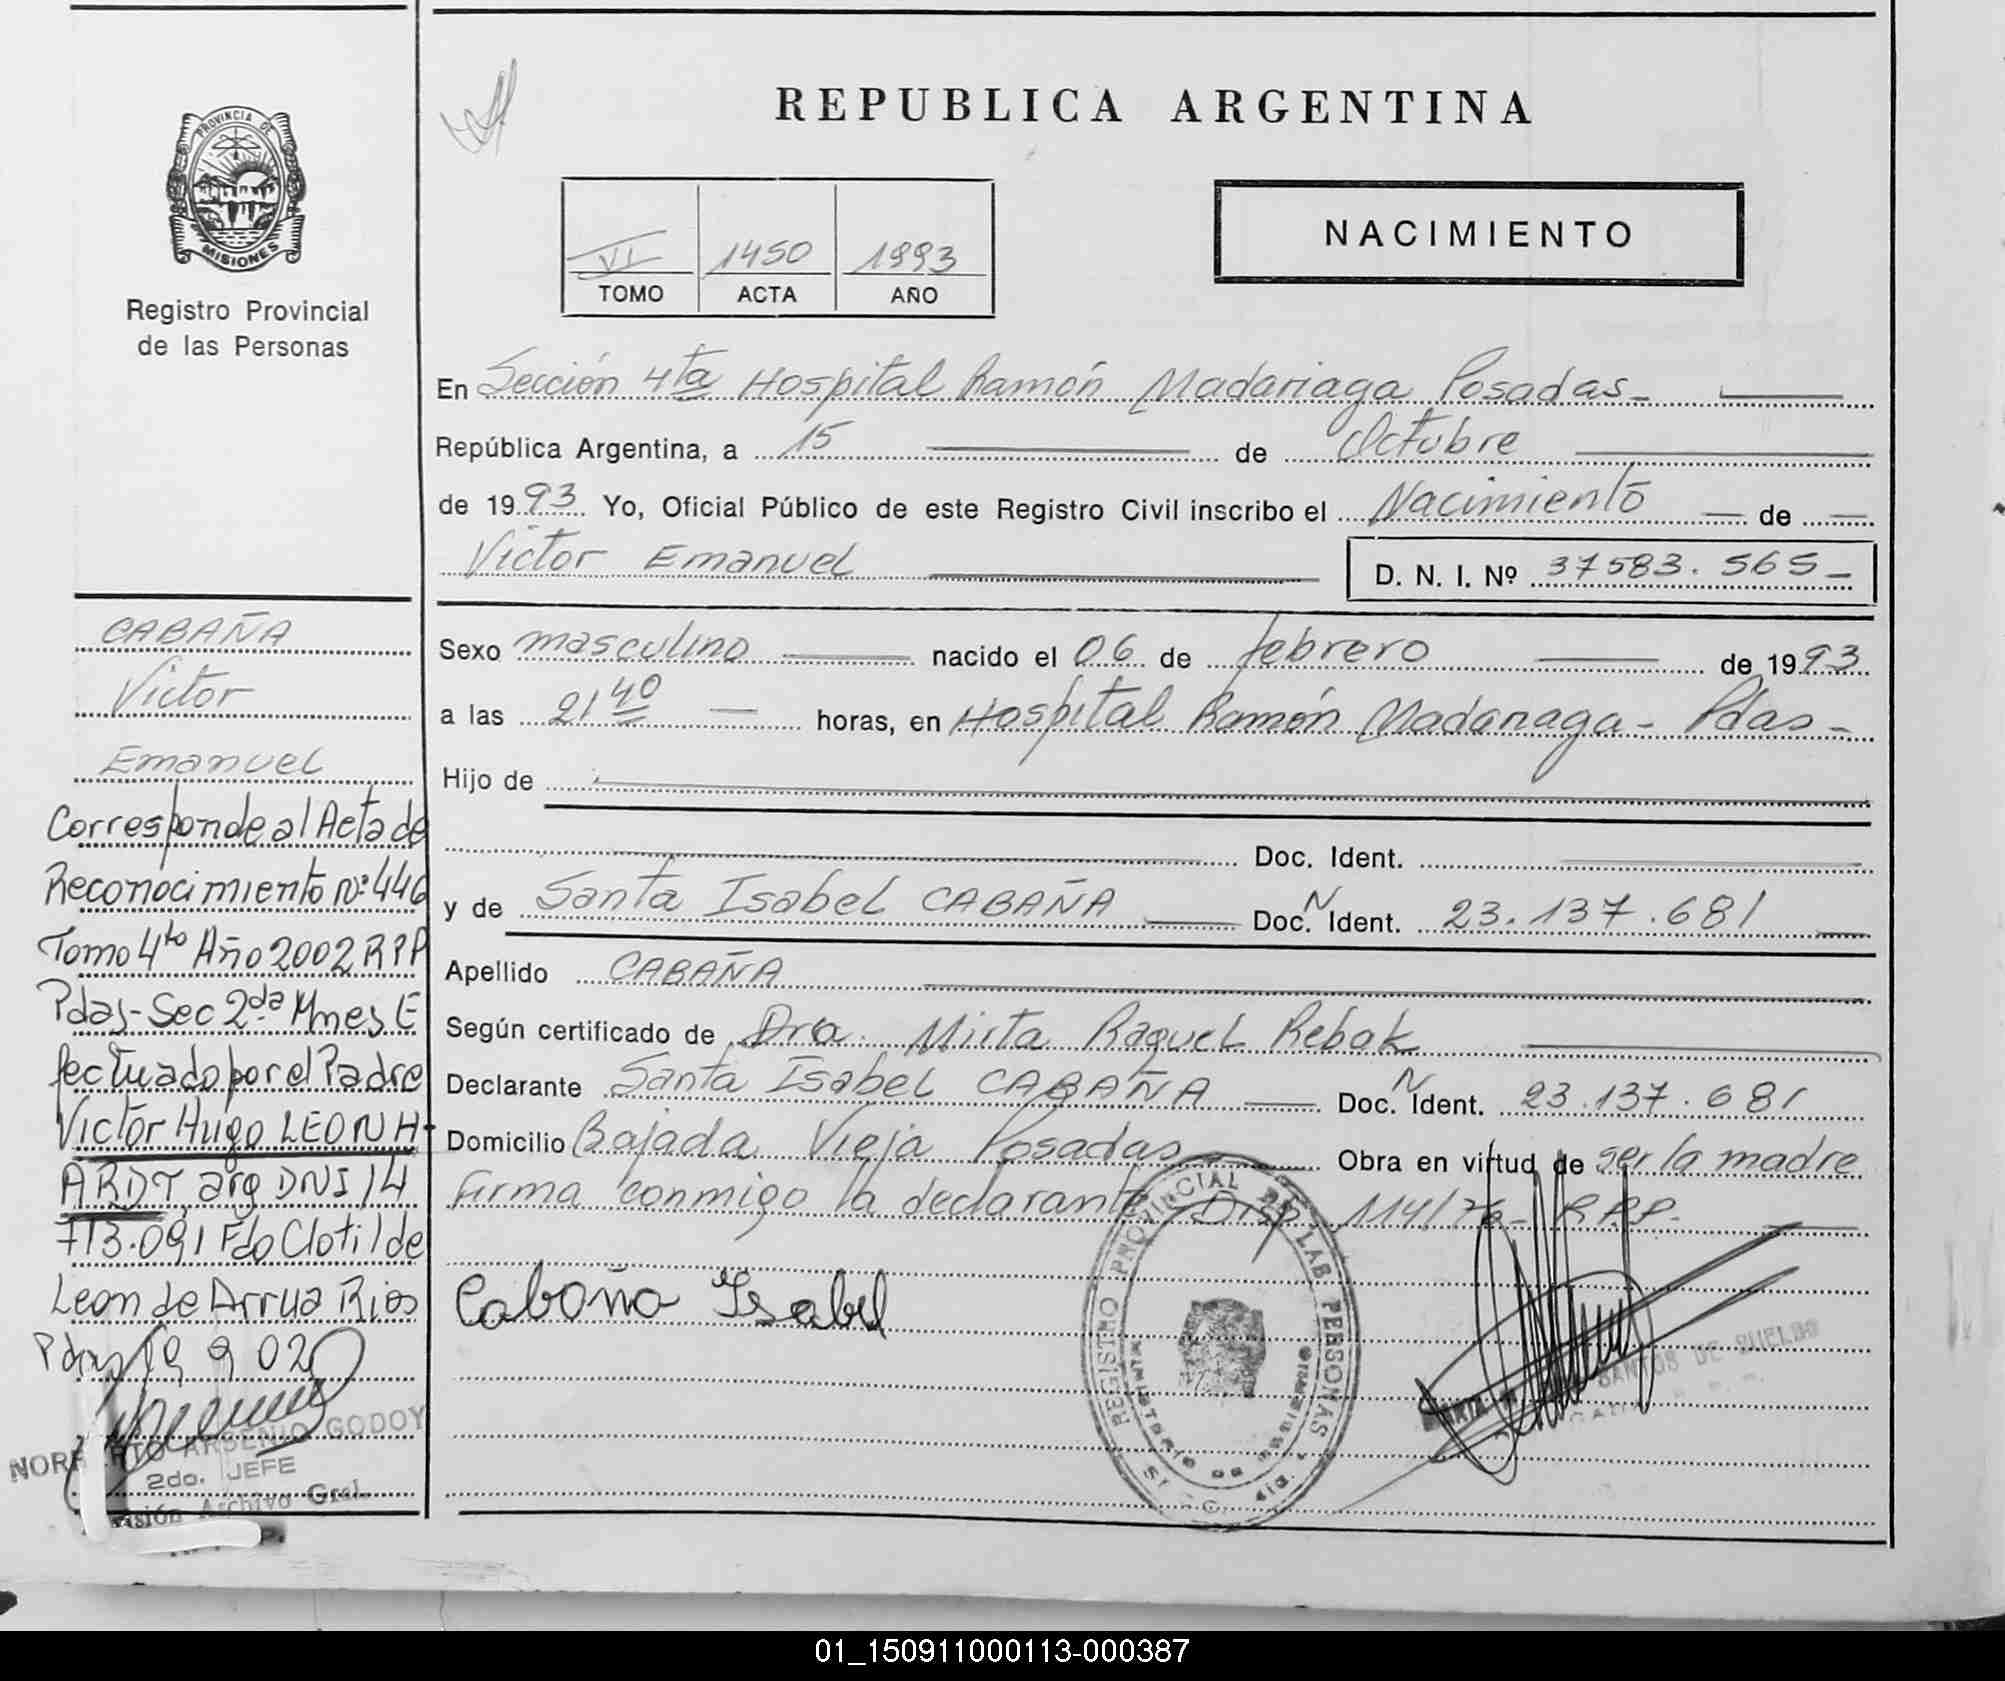 PROVINCIA DE
MISIONES
Registro Provincial
de las Personas
REPUBLICA ARGENTINA
NACIMIENTO
VI 1450 1993
TOMO ACTA AÑO
En Sección 4ta Hospital Ramón Madariaga Posadas-
República Argentina, a 15 de Octubre
de 1993 Yo, Oficial Público de este Registro Civil inscribo el Nacimiento de
Victor Emanuel D. N. I. Nº 37583.565-
Sexo masculino nacido el 06 de febrero de 1993
a las 21 40 horas, en Hospital Ramón Madariaga - Pdas -
Hijo de
Doc. Ident.
y de Santa Isabel CABAÑA Doc. N Ident. 23.137.681
Apellido CABAÑA
Según certificado de Dra. Mirta Raquel Rebak
Declarante Santa Isabel CABAÑA Doc. N Ident. 23.137.681
Domicilio Bajada Vieja Posadas Obra en virtud de ser la madre
firma conmigo la declarante Disp 114/76- RPP.
Cabaña Isabel
REGISTRO PROVINCIAL DE LAS PERSONAS
SANTOS DE
CABAÑA
Victor
Emanuel
Corresponde al Acta de
Reconocimiento Nº 446
Tomo 4to Año 2002 RPP
Pdas-Sec 2da Mnes E
fectuado por el Padre
Victor Hugo LEONH-
ARDT arg DNI 14
713.091 Fdo Clotilde
Leon de Arrua Rios
Pdas 19 9 02
ARSENIO GODOY
2do. JEFE
Archivo Gral.
01_150911000113-000387